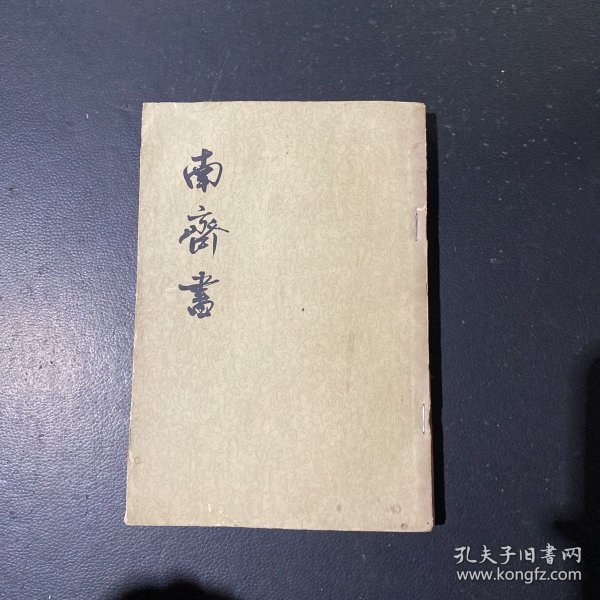 南齊書
孔夫子旧書网
www.kongfz.com